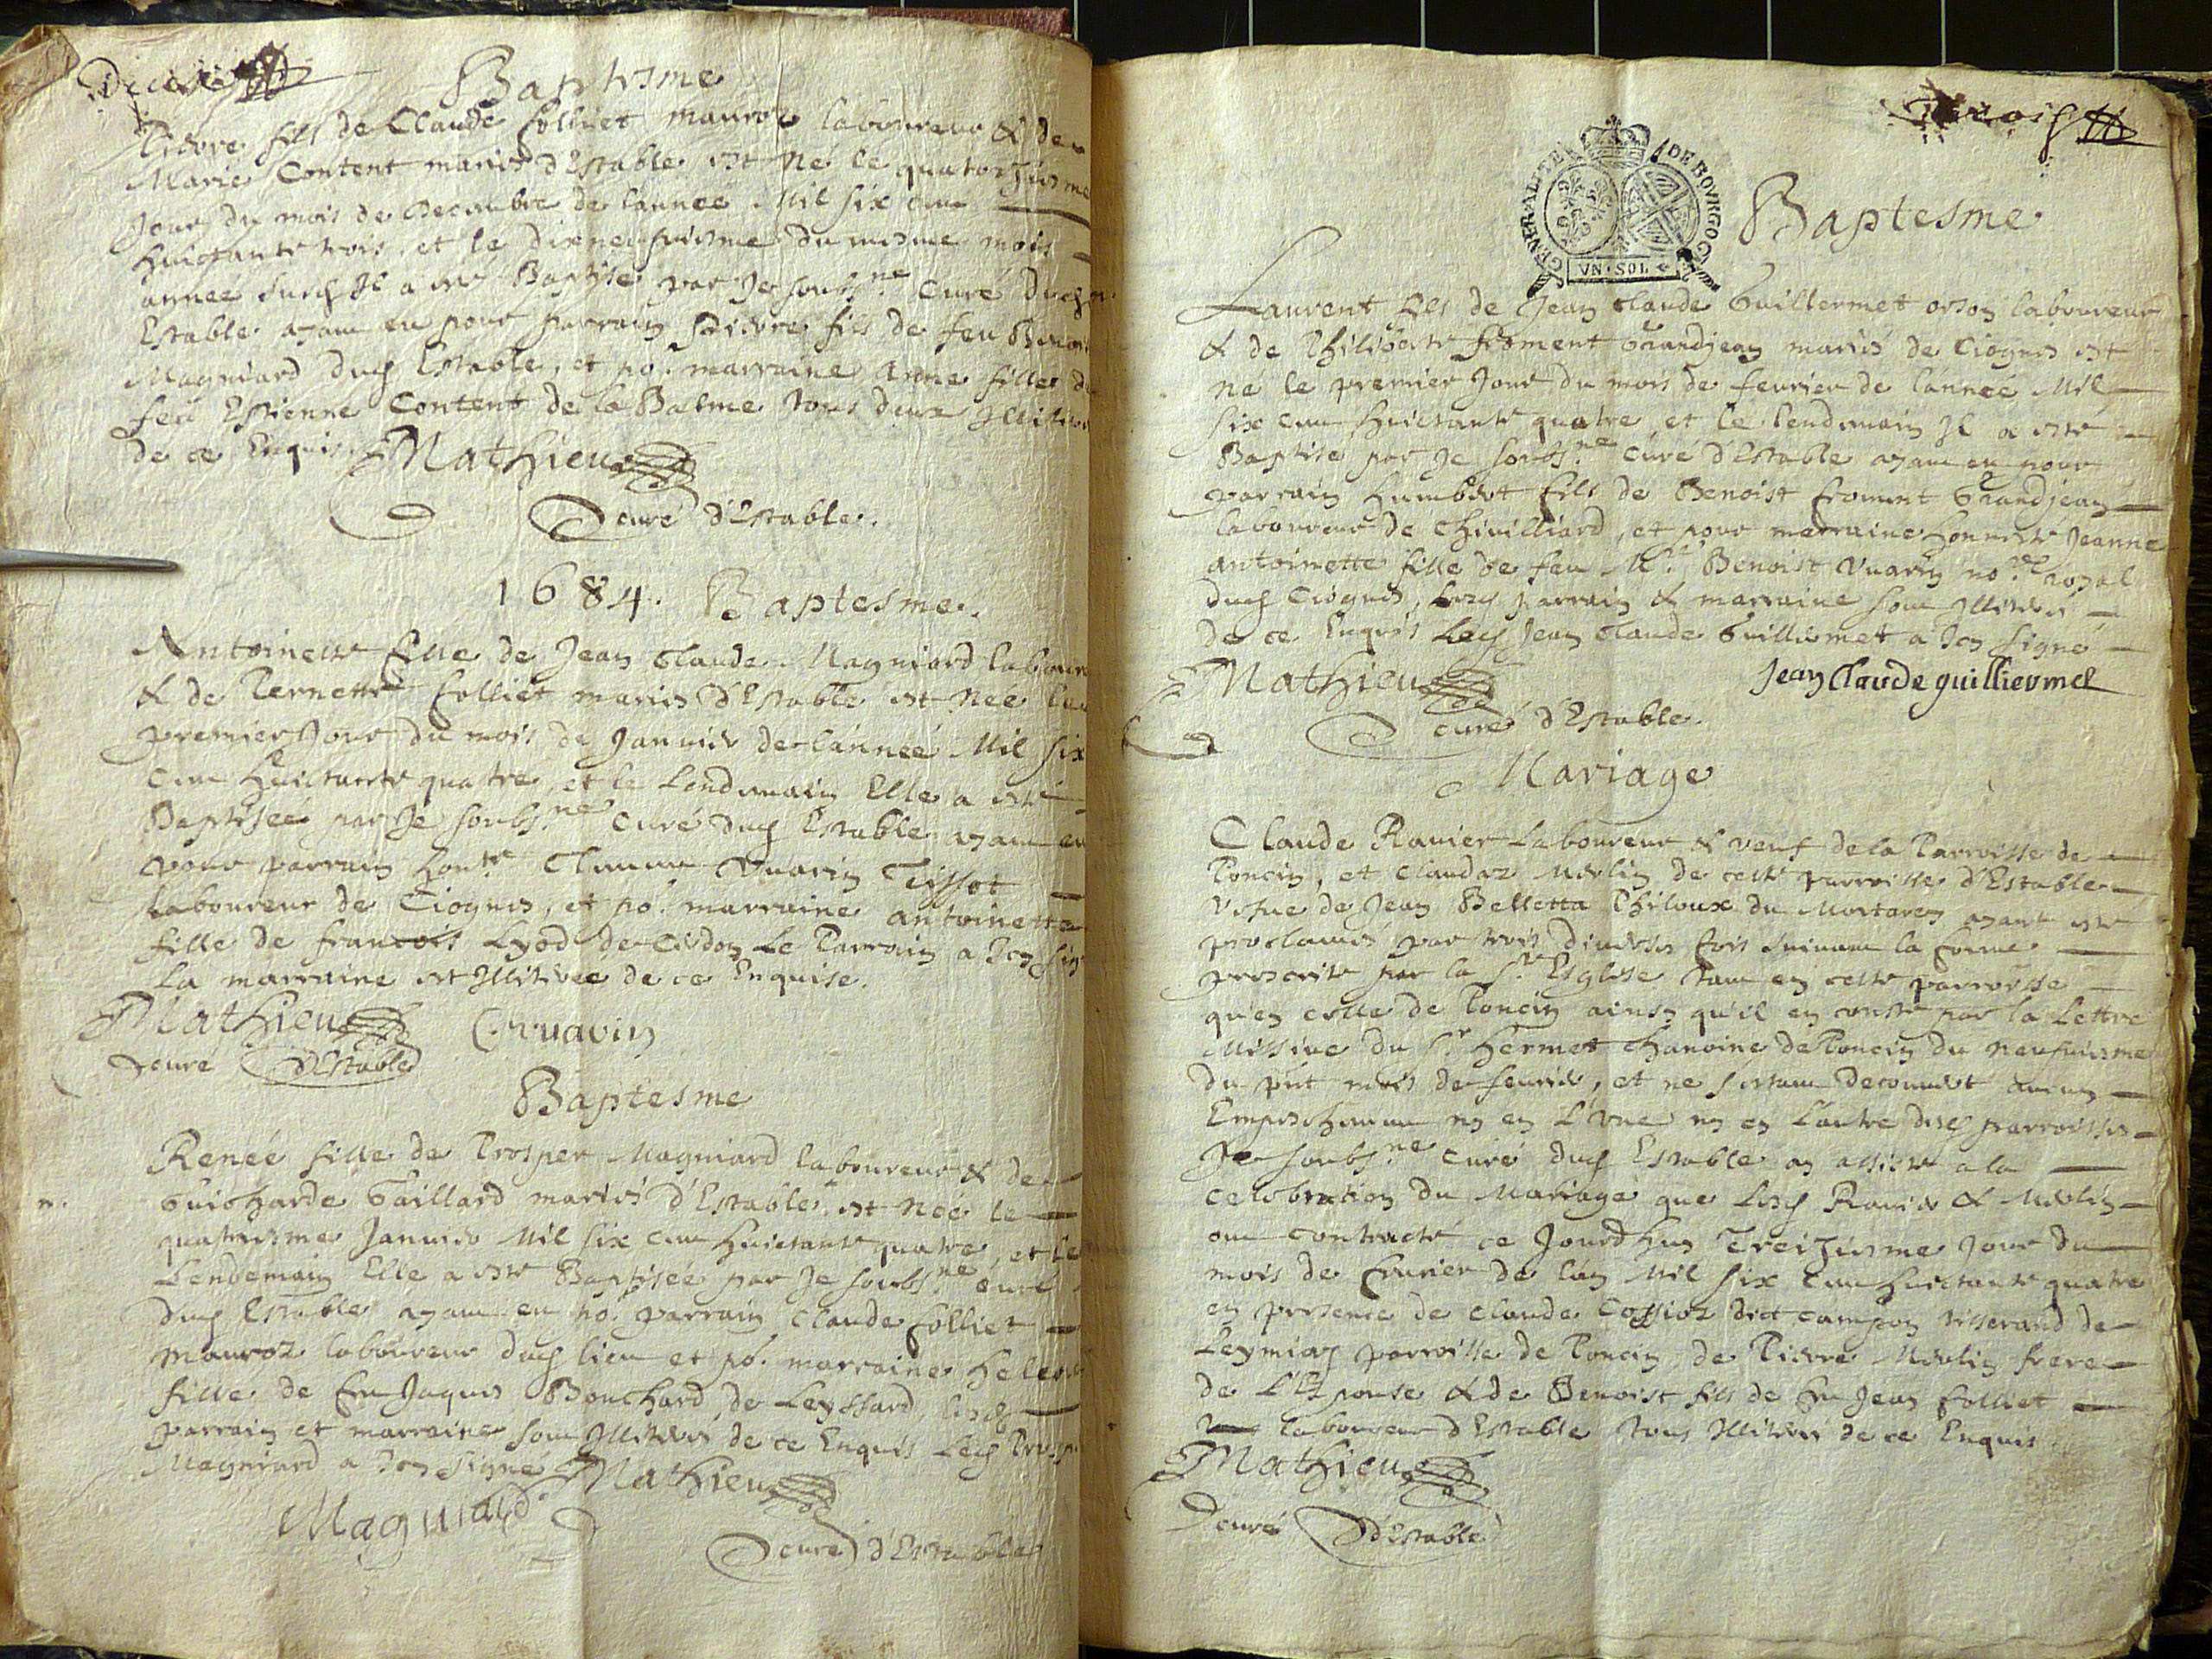 Baptisme
Pierre fils de Claude Colliet mauroz laboureur & de
Marie Content mariés d'Estable est Né le quatorziesme
Jour du mois de Decembre de l'année Mil six cent
huictante trois, et le dixneufviesme du mesme mois
annee susd Il a esté Baptisé par Je soubs.ne Curé dud
Estable ayant eu pour parrain Pierre fils de feu Benoi
Magniard dud Estable, et po.r marraine Anne fille de
feu Estienne Content de la Balme tous deux Illiteré
de ce Enquis. Mathieu
curé d'Estable.
1684. Baptesme.
Antoinette fille de Jean Claude Magniard labour
& de Pernette Colliet mariés d'Estable est Née le
premier Jour du mois de Janvier de l'année Mil six
cent huictante quatre, et le Lendemain Elle a esté
Baptisée par Je soubs.ne Curé dud Estable ayant eu
pour parrain hon.te Vuarin Teissot
laboureur de Ciognes, et po.r marraine antoinette
fille de francois Lyod de Cerdon Le Parrain a Icy sig
La marraine est Illiterée de ce Enquise.
Mathieu C. vuarin
curé d'Estable
Baptesme
Renée fille de Prosper Magniard laboureur & de
Guicharde Gaillard mariés d'Estable, est Née le
quatriesme Janvier Mil six cent huictante quatre, et le
Lendemain Elle a esté Baptisée par Je soubs.ne curé
dud Estable ayant eu po.r parrain Claude Colliet
mauroz laboureur dud lieu et po.r marraine Helen
fille de feu Jaques Bouchard de Leyssard, lesd
parrain et marraine sont Illiterés de ce Enquis Led Prosp
Magniard a Icy signé Mathieu
Magniard
curé d'Estable
Trois
GENERALITE DE BOVRGOGNE
VN·SOL
Baptesme
Laurent fils de Jean Claude Guillermet orson laboureur
& de Philiberte froment Grandjean mariés de Ciognes est
né le premier Jour du mois de fevrier de l'année Mil
six cent huictante quatre et le lendemain Il a esté
Baptisé par Je soubs.ne Curé d'Estable ayant eu pour
parrain humbert fils de Benoist froment Grandjean
laboureur de Chivilliard, et pour marraine honneste Jeanne
antoinette fille de feu M.e Benoist Vuarin no.re royal
dud Ciognes, Lesd parrain & marraine sont Illiterés
de ce Enquis Led Jean Claude Guillermet a Icy signé
Mathieu Jean Claude guilliermet
curé d'Estable.
Mariage
Claude Ravier Laboureur & veuf de la Parroisse de
Poncin, et Claudaz Merlin de ceste parroisse d'Estable
vefve de Jean Belletta Philoux du Mortarey ayant esté
proclamés par trois diverses fois suivant la forme
prescrite par la s.te Esglise tant en ceste parroisse
qu'en celle de Poncin ainsy qu'il en conste par la Lettre
Missive du s.r hermet chanoine de Poncin du neufviesme
du pnt mois de fevrier, et ne s'estant decouvert aucun
Empeschement ny en L'une ny en L'autre desd parroisses
Je soubs.ne Curé dud Estable ay assisté a la
celebration du Mariage que Lesd Ravier & Merlin
ont contracté ce Jourdhuy Treiziesme Jour du
mois de fevrier de l'an Mil six cent huictante quatre
en presence de Claude Cossioz dict campion tisserand de
Leymiaz parroisse de Poncin de Pierre Merlin frere
de L'Espouse & de Benoist fils de feu Jean Colliet
laboureur d'Estable tous Illiterés de ce Enquis
Mathieu
curé d'Estable